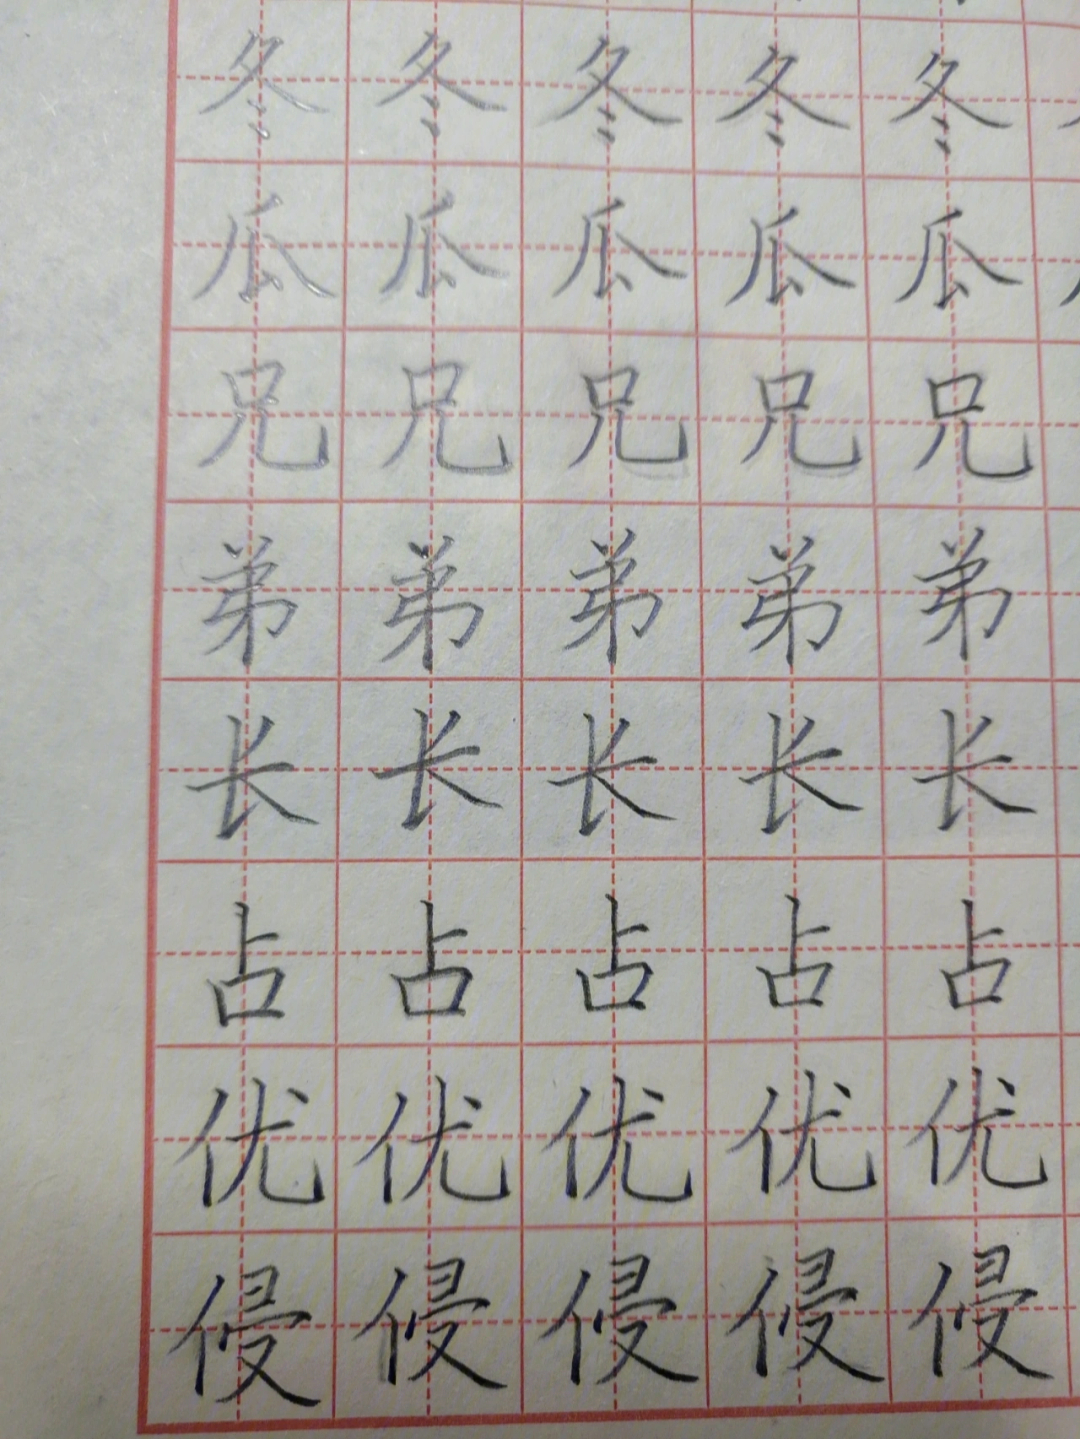 冬冬冬冬冬
瓜瓜瓜瓜瓜
兄兄兄兄兄
弟弟弟弟弟
长长长长长
占占占占占
优优优优优
侵侵侵侵侵